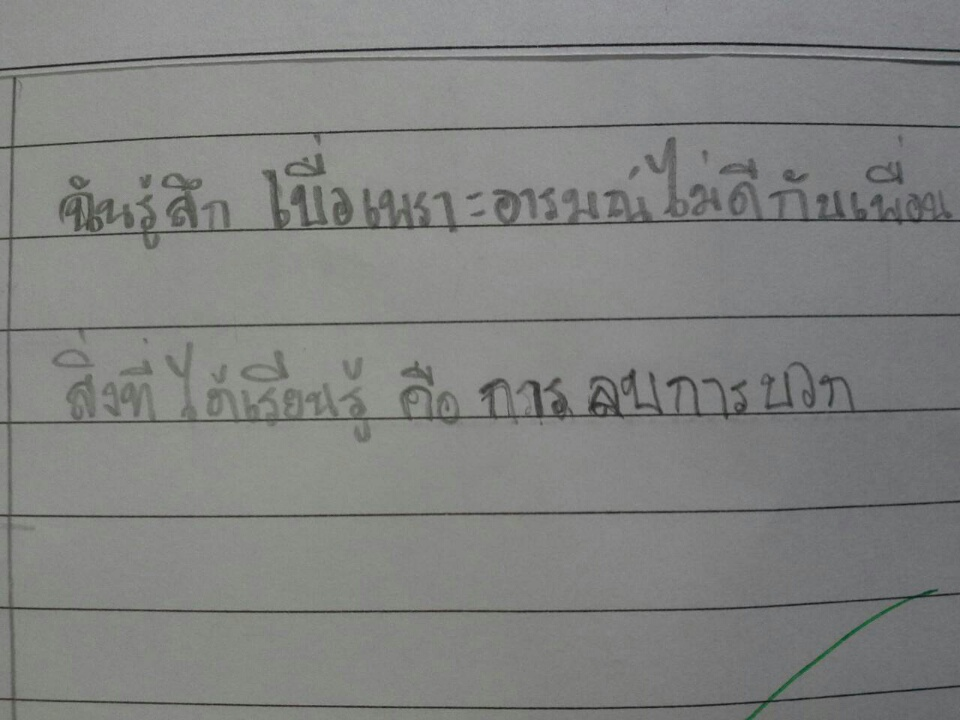 ฉันรู้สึก เบื่อเพราะอารมณ์ไม่ดีกับเพื่อน
สิ่งที่ได้เรียนรู้ คือ การ ลบการบวก